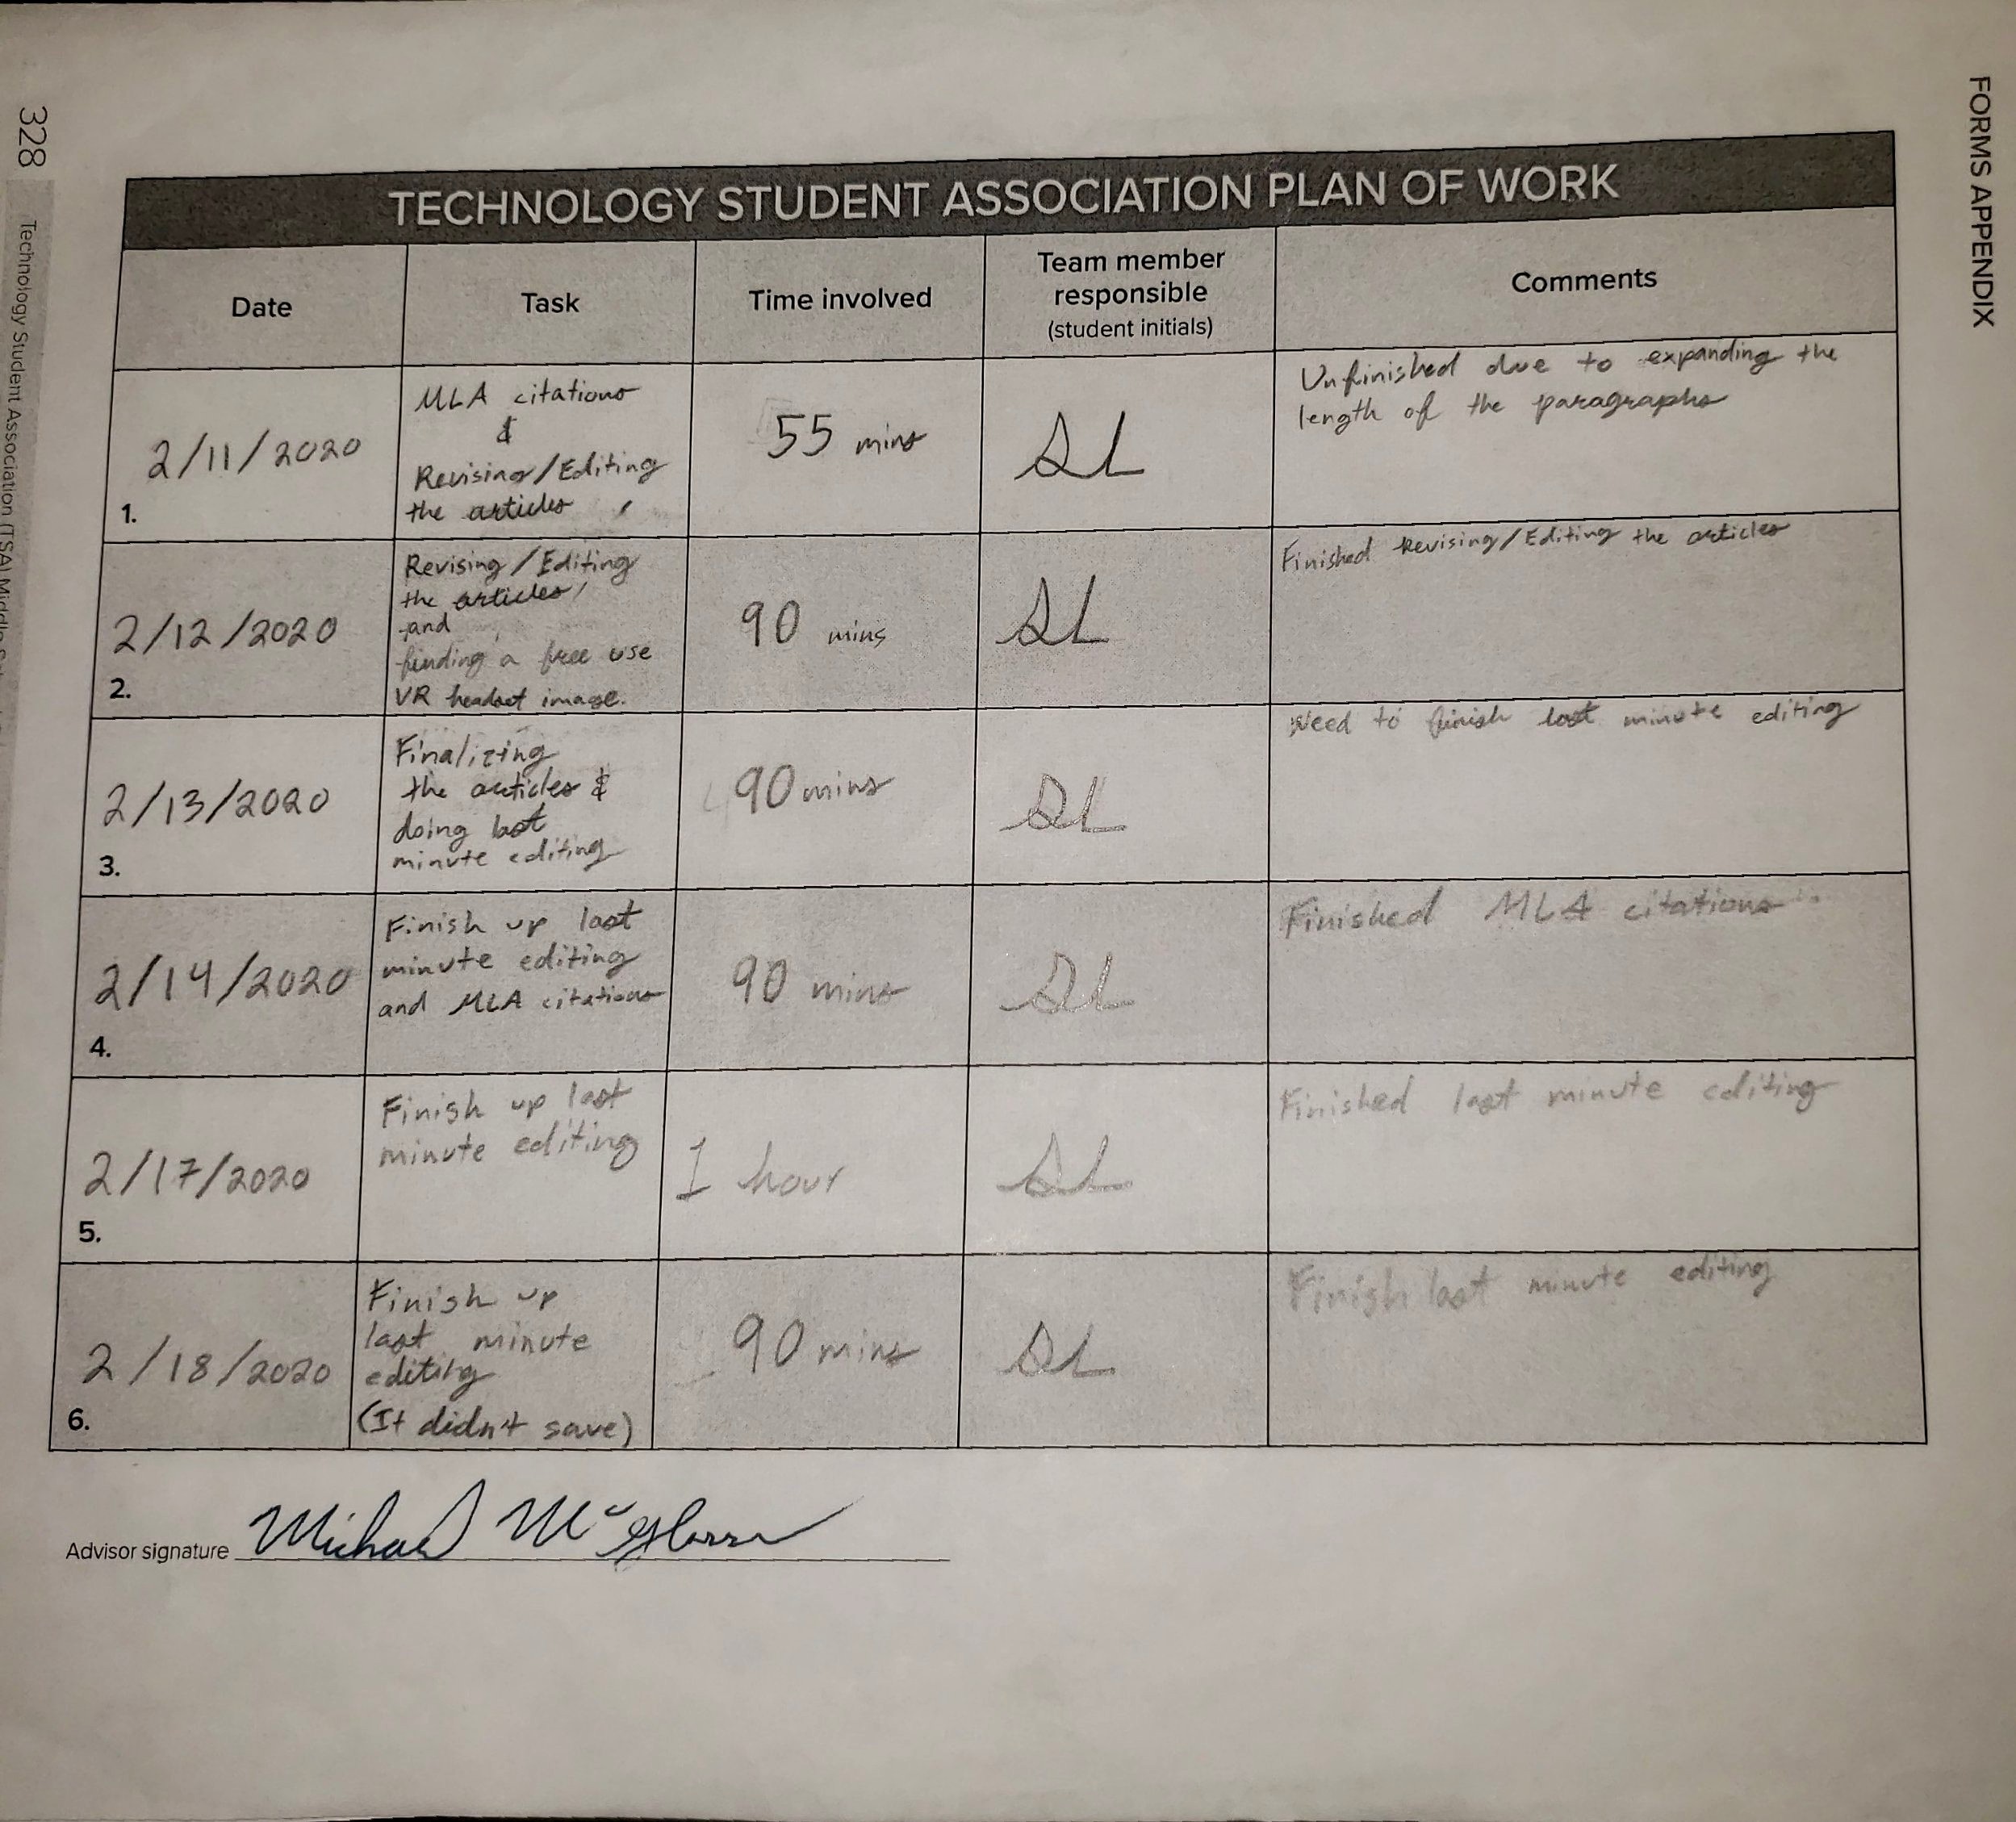 FORMS APPENDIX
TECHNOLOGY STUDENT ASSOCIATION PLAN OF WORK
Date
Task
Time involved
Team member
responsible
(student initials)
Comments
1.
2/11/2020
MLA citations
&
Revising/Editing
the articles
55 mins
Unfinished due to expanding the
length of the paragraphs
2.
2/12/2020
Revising/Editing
the articles,
and
finding a free use
VR headset image.
90 mins
Finished Revising/Editing the articles
3.
2/13/2020
Finalizing
the articles &
doing last
minute editing
90 mins
Need to finish last minute editing
4.
2/14/2020
Finish up last
minute editing
and MLA citations
90 mins
Finished MLA citations
5.
2/17/2020
Finish up last
minute editing
1 hour
Finished last minute editing
6.
2/18/2020
Finish up
last minute
editing
(It didn't save)
90 mins
Finish last minute editing
Advisor signature Michael
328
Technology Student Association (TSA) Middle